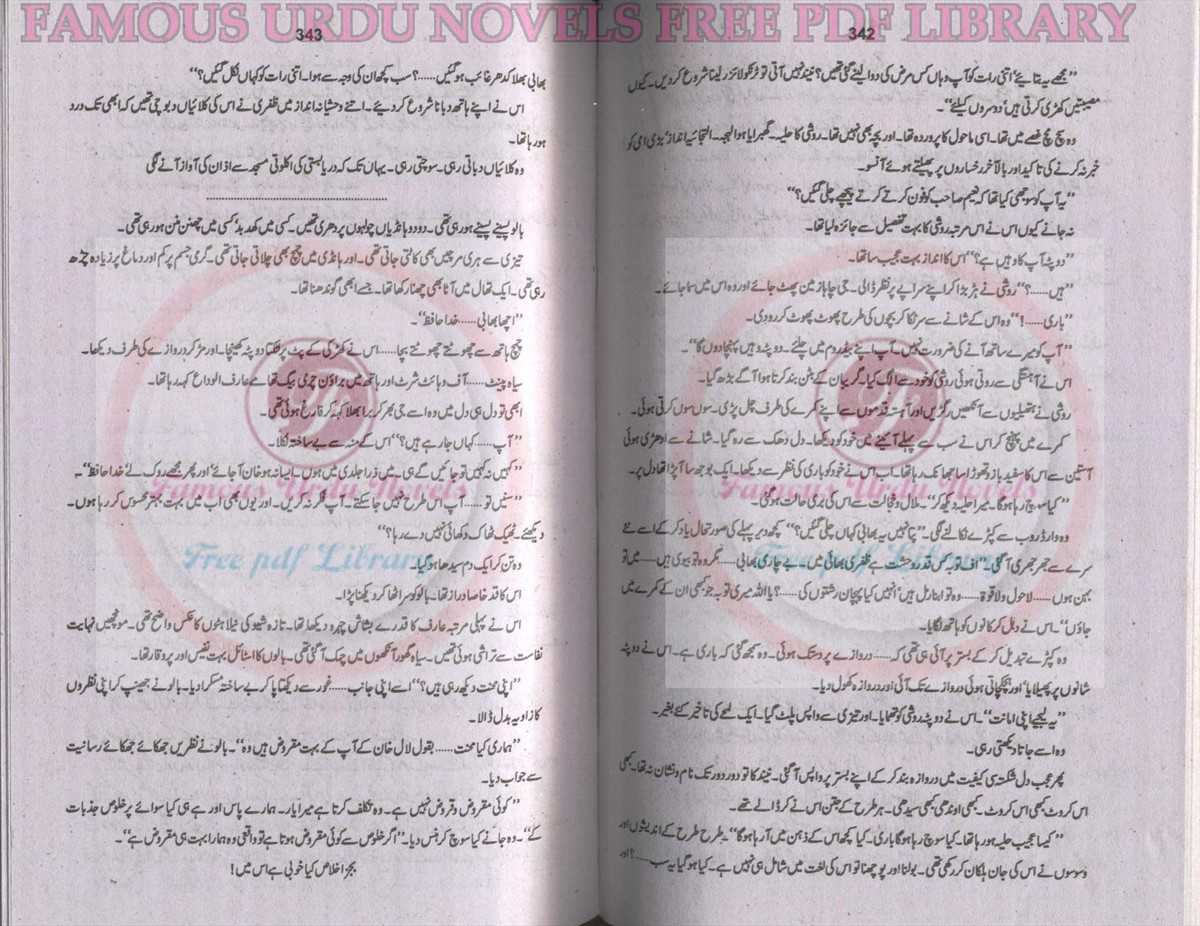 FAMOUS URDU NOVELS FREE PDF LIBRARY
342
”مجھے یہ بتائیے‘ اتنی رات کو آپ وہاں کس مرض کی دوا لینے گئی تھیں؟ نیند نہیں آتی تو ٹرنکولائزر لینا شروع کردیں۔ کیوں
مصیبتیں کھڑی کرتی ہیں‘ دوسروں کیلئے“۔
وہ سچ مچ غصے میں تھا۔ اسی ماحول کا پروردہ تھا۔ اور بچہ بھی نہیں تھا۔ روشی کا حلیہ۔ گھبرایا ہوا لہجہ۔ التجائیہ انداز‘ بڑی امی کو
خبر نہ کرنے کی تاکید اور بالآخر رخساروں پر پھیلتے ہوئے آنسو۔
”یہ آپ کو سوجھی کیا تھا کہ نعیم صاحب کو فون کرتے کرتے پیچھے چلی گئیں؟“
نہ جانے کیوں اس نے اس مرتبہ روشی کا بہت تفصیل سے جائزہ لیا تھا۔
”دوپٹہ آپ کا وہیں ہے؟“ اس کا انداز بہت عجیب سا تھا۔
”ہیں......؟“ روشی نے ہڑبڑا کر اپنے سراپے پر نظر ڈالی۔ جی چاہا زمین پھٹ جائے اور وہ اس میں سما جائے۔
”باری......!“ وہ اس کے شانے سے سر ٹکا کر بچوں کی طرح پھوٹ پھوٹ کر رو دی۔
”آپ کو میرے ساتھ آنے کی ضرورت نہیں۔ آپ اپنے بیڈروم میں چلئے۔ دوپٹہ وہیں پہنچا دوں گا“۔
اس نے آہستگی سے روتی ہوئی روشی کو خود سے الگ کیا۔ گریبان کے بٹن بند کرتا ہوا آگے بڑھ گیا۔
روشی نے ہتھیلیوں سے آنکھیں رگڑیں اور آہستہ قدموں سے اپنے کمرے کی طرف چل پڑی۔ سوں سوں کرتی ہوئی۔
کمرے میں پہنچ کر اس نے سب سے پہلے آئینے میں خود کو دیکھا۔ دل دھک سے رہ گیا۔ شانے سے ادھڑی ہوئی
آستین سے اس کا سفید بازو تھوڑا سا جھانک رہا تھا۔ اب اس نے خود کو باری کی نظر سے دیکھا۔ ایک بوجھ سا آپڑا تھا دل پر۔
”کیا سوچ رہا ہوگا۔ میرا حلیہ دیکھ کر“۔ ملال و خجالت سے اس کی بری حالت ہوگئی۔
وہ وارڈروب سے کپڑے نکالنے لگی۔ ”پتا نہیں یہ بھابی کہاں چلی گئیں؟“ کچھ دیر پہلے کی صورتحال یاد کر کے اسے نئے
سرے سے جھرجھری آگئی۔ ”اف توبہ کس قدر وحشت ہے ظفری بھائی میں۔ بے چاری بھابی...... مگر وہ تو بیوی ہیں...... میں تو
بہن ہوں...... لاحول ولا قوۃ...... وہ تو ابنارمل ہیں‘ انہیں کیا پہچان رشتوں کی......؟ یا اللہ میری توبہ جو کبھی ان کے کمرے میں
جاؤں“۔ اس نے دہل کر کانوں کو ہاتھ لگایا۔
وہ کپڑے تبدیل کر کے بستر پر آئی ہی تھی کہ...... دروازے پر دستک ہوئی۔ وہ سمجھ گئی کہ باری ہے۔ اس نے دوپٹہ
شانوں پر پھیلایا‘ اور ہچکچاتی ہوئی دروازے تک آئی اور دروازہ کھول دیا۔
”یہ لیجیے اپنی امانت“۔ اس نے دوپٹہ روشی کو تھمایا۔ اور تیزی سے واپس پلٹ گیا۔ ایک لمحے کی تاخیر کئے بغیر۔
وہ اسے جاتا دیکھتی رہی۔
پھر عجب دل شکستہ سی کیفیت میں دروازہ بند کر کے اپنے بستر پر واپس آگئی۔ نیند کا تو دور دور تک نام و نشان نہ تھا۔ کبھی
اس کروٹ کبھی اس کروٹ۔ کبھی اوندھی کبھی سیدھی۔ ہر طرح کے جتن اس نے کر ڈالے تھے۔
”کیسا عجیب حلیہ ہو رہا تھا۔ کیا سوچ رہا ہوگا باری۔ کیا کچھ اس کے ذہن میں آ رہا ہوگا“۔ طرح طرح کے اندیشوں اور
وسوسوں نے اس کی جان ہلکان کر رکھی تھی۔ بولنا اور پوچھنا تو اس کی لغت میں شامل ہی نہیں ہے۔ کیا ہوگیا یہ سب......؟ اور
343
بھابی بھلا کدھر غائب ہوگئیں......؟ سب کچھ ان کی وجہ سے ہوا۔ اتنی رات کو کہاں نکل گئیں؟“
اس نے اپنے ہاتھ دبانا شروع کر دیئے۔ اتنے وحشیانہ انداز میں ظفری نے اس کی کلائیاں دبوچی تھیں کہ ابھی تک درد
ہو رہا تھا۔
وہ کلائیاں دباتی رہی۔ سوچتی رہی۔ یہاں تک کہ دریا بستی کی اکلوتی مسجد سے اذان کی آواز آنے لگی
..........................................
بالو پسینے پسینے ہو رہی تھی۔ دو دو ہانڈیاں چولہوں پر دھری تھیں۔ کسی میں کھد بد‘ کسی میں چھنن منن ہو رہی تھی۔
تیزی سے ہری مرچیں بھی کاٹتی جاتی تھی۔ اور ہانڈی میں چمچ بھی چلاتی جاتی تھی۔ گرمی جسم پر کم اور دماغ پر زیادہ چڑھ
رہی تھی۔ ایک تھال میں آٹا بھی چھنا رکھا تھا۔ جسے ابھی گوندھنا تھا۔
”اچھا بھابی...... خدا حافظ“۔
چمچ ہاتھ سے چھوٹتے چھوٹتے بچا...... اس نے کھڑکی کے پٹ پر لٹکتا دوپٹہ کھینچا۔ اور مڑ کر دروازے کی طرف دیکھا۔
سیاہ پینٹ...... آف وہائٹ شرٹ اور ہاتھ میں براؤن چرمی بیگ تھامے عارف الوداع کہہ رہا تھا۔
ابھی تو دل ہی دل میں وہ اسے جی بھر کر برا بھلا کہہ کر فارغ ہوئی تھی۔
”آپ...... کہاں جا رہے ہیں؟“ اس کے منہ سے بے ساختہ نکلا۔
”کہیں نہ کہیں تو جائیں گے ہی۔ میں ذرا جلدی میں ہوں۔ ایسا نہ ہو خان آجائے‘ اور پھر مجھے روک لے‘ خدا حافظ“۔
”سنیں تو...... آپ اس طرح نہیں جاسکتے۔ آپ فکر نہ کریں۔ اور یوں بھی اب میں بہت بہتر محسوس کر رہا ہوں۔
دیکھئے۔ ٹھیک ٹھاک دکھائی نہیں دے رہا؟“
وہ تن کر ایک دم سیدھا ہو گیا۔
اس کا قد خاصا دراز تھا۔ بالو کو سر اٹھا کر دیکھنا پڑا۔
اس نے پہلی مرتبہ عارف کا قدرے بشاش چہرہ دیکھا تھا۔ تازہ شیو کی نیلاہٹوں کا عکس واضح تھی۔ مونچھیں نہایت
نفاست سے تراشی ہوئی تھیں۔ سیاہ گھور آنکھوں میں چمک آگئی تھی۔ بالوں کا اسٹائل بہت نفیس اور پروقار تھا۔
”اپنی محنت دیکھ رہی ہیں؟“ اسے اپنی جانب...... غور سے دیکھتا پا کر بے ساختہ مسکرا دیا۔ بالو نے جھینپ کر اپنی نظروں
کا زاویہ بدل ڈالا۔
”ہماری کیا محنت...... بقول لال خان کے آپ کے بہت مقروض ہیں وہ“۔ بالو نے نظریں جھکائے جھکائے رسانیت
سے جواب دیا۔
”کوئی مقروض وقروض نہیں ہے۔ وہ تکلف کرتا ہے میرا یار۔ ہمارے پاس اور ہے ہی کیا سوائے پر خلوص جذبات
کے“۔ وہ جانے کیا سوچ کر ہنس دیا۔ ”اگر خلوص سے کوئی مقروض ہوتا ہے تو واقعی وہ ہمارا بہت ہی مقروض ہے“۔
بجز اخلاص کیا خوبی ہے اس میں!
Famous Urdu Novels
Free pdf Library
Famous Urdu Novels
Free pdf Library